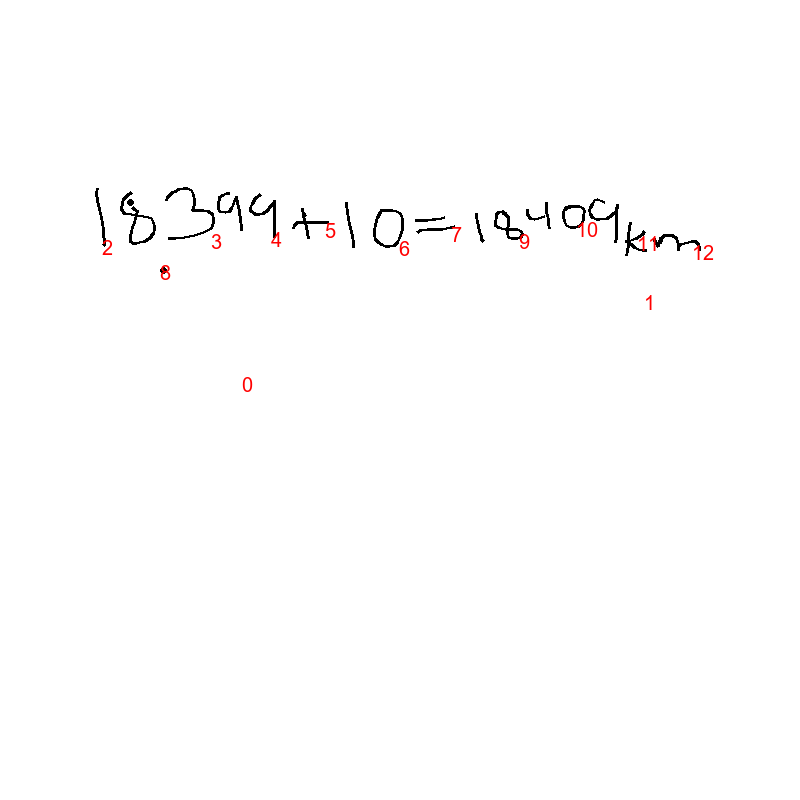 18399+10=18409km
2 3 4 5 6 7 9 10 11 12
8
1
0